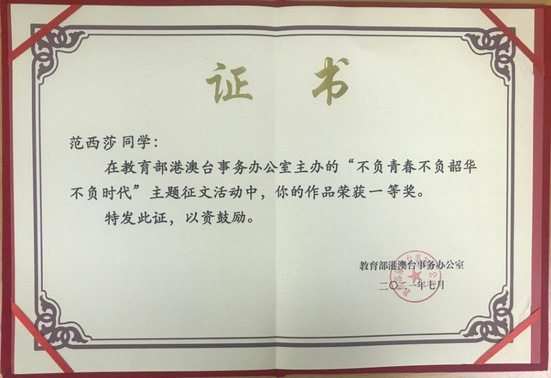 证 书
范西莎同学：
在教育部港澳台事务办公室主办的“不负青春不负韶华
不负时代”主题征文活动中，你的作品荣获一等奖。
特发此证，以资鼓励。
教育部港澳台事务办公室
二〇二一年七月